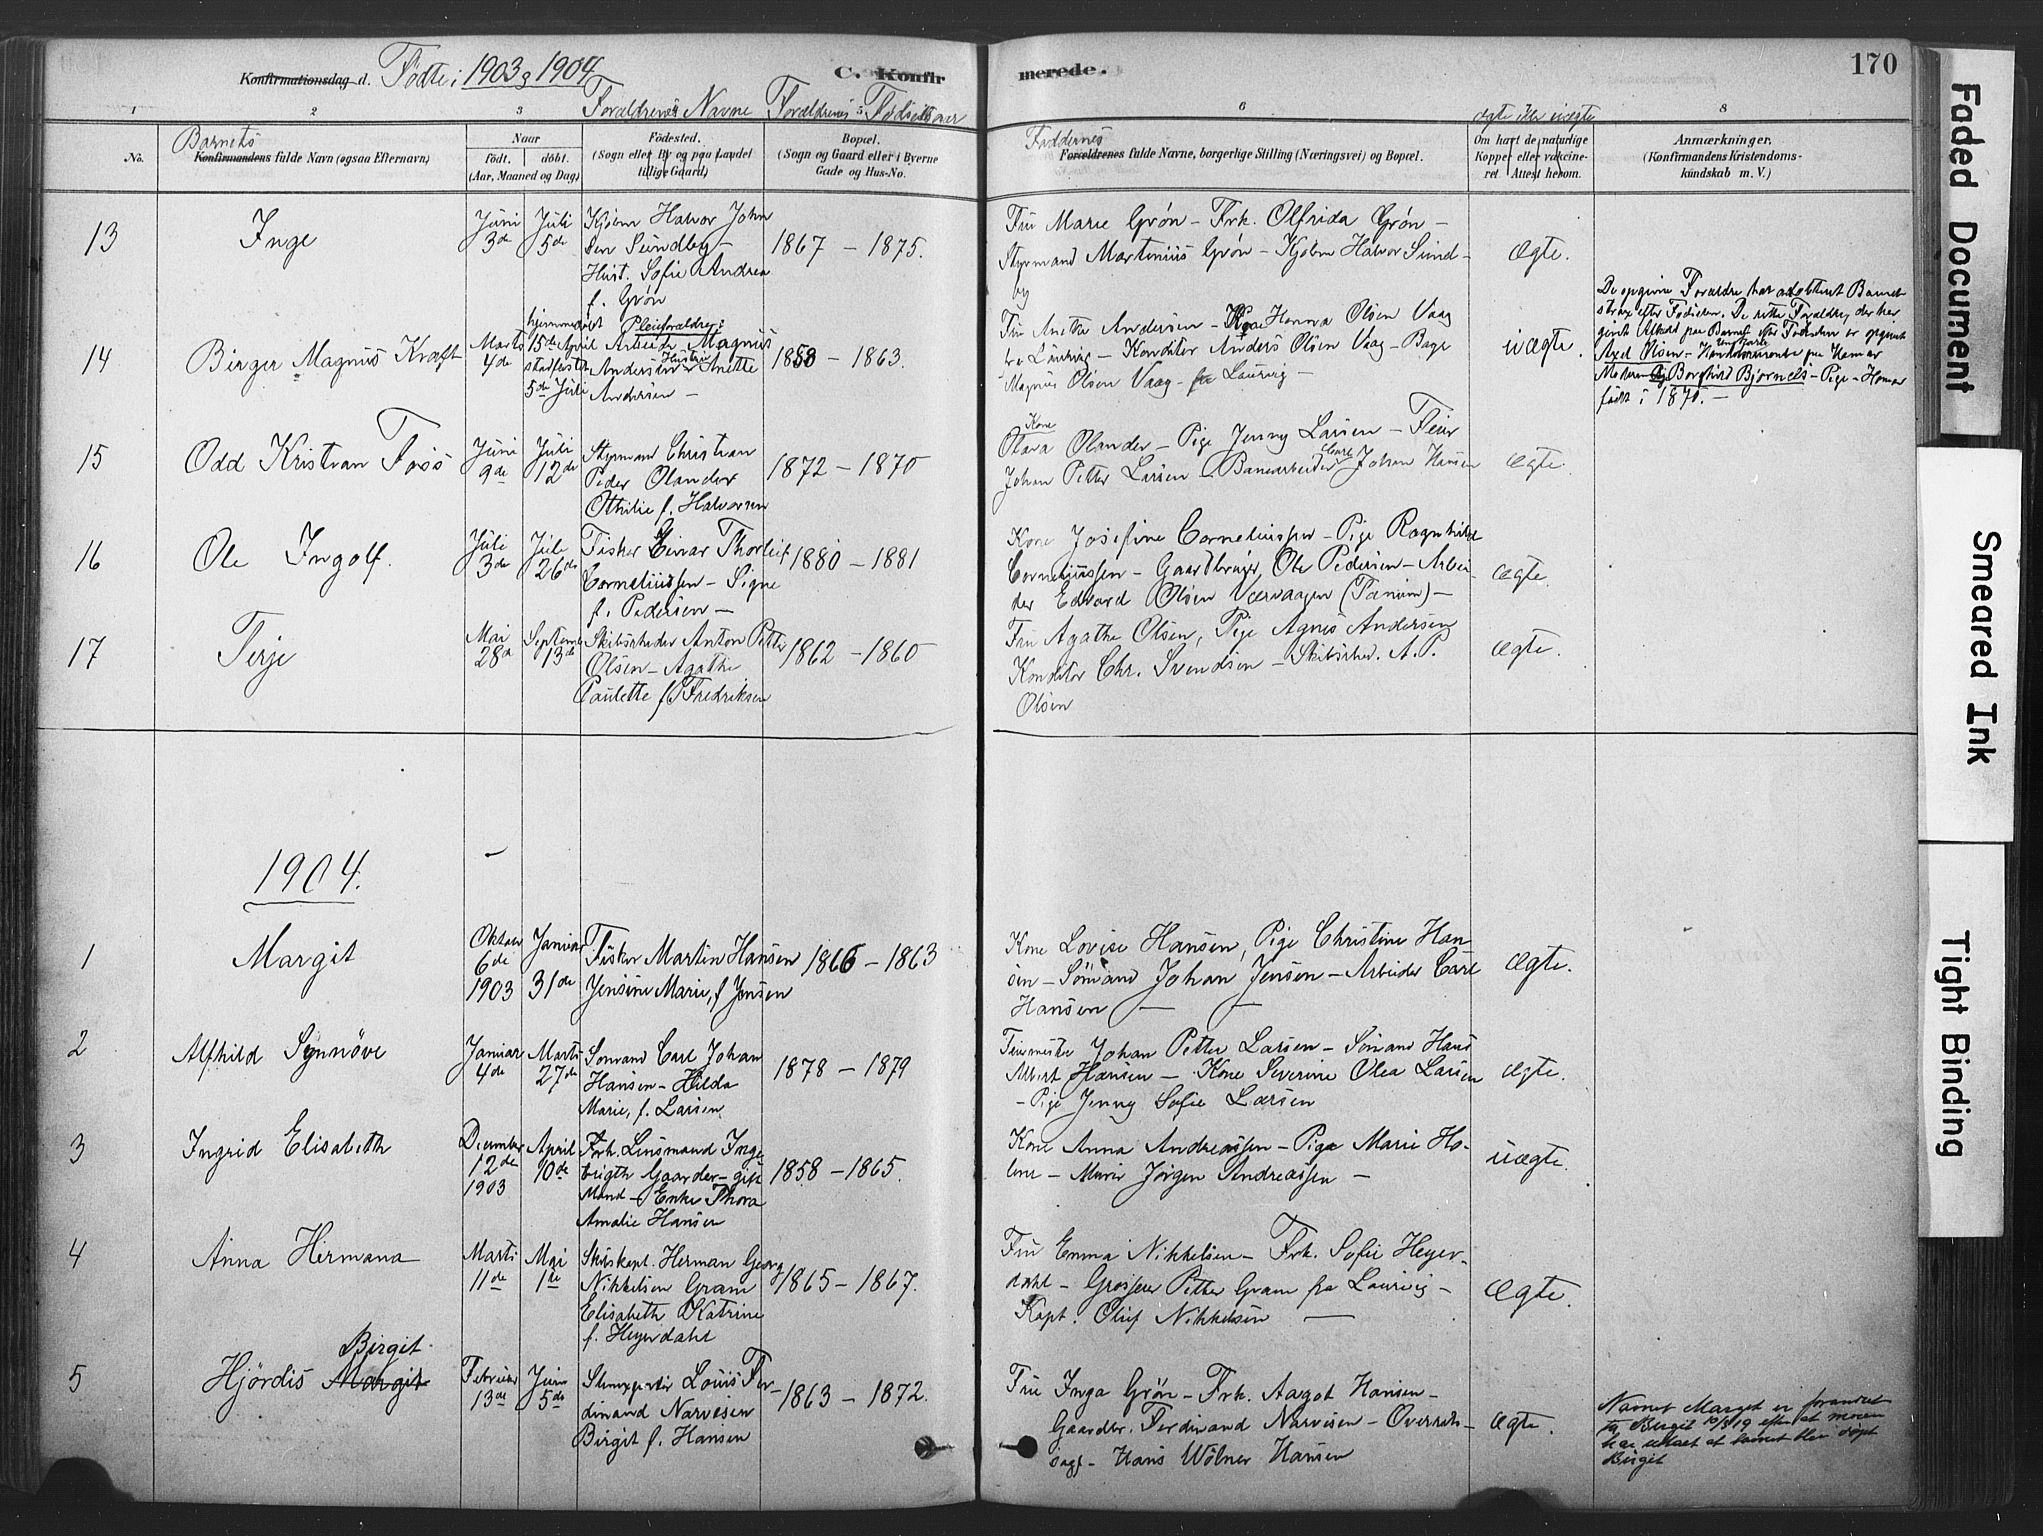 Konfirmationsdag d. Fødte i 1903 og 1904
C. Konfirmerede.
170
1 2 3 4 5 6 7 8
Forældrenes Navne
Forældrenes Fødselsaar
ægte eller uægte
No.
Barnets
Konfirmandens fulde Navn (ogsaa Efternavn)
Naar
født. døbt.
(Aar, Maaned og Dag)
Födested.
(Sogn eller By og paa Landet
tillige Gaard)
Bopæl.
(Sogn og Gaard eller i Byerne
Gade og Hus-No.
Faddernes
Forældrenes fulde Navne, borgerlige Stilling (Næringsvei) og Bopæl.
Om havt de naturlige
Kopper eller vaccine-
ret Attest herom.
Anmærkninger.
(Konfirmandens Kristendoms-
kundskab m. V.)
13
Inge
Juni
3de
Juli
5de
Kjøbm Halvor John
sen Sundbg –
Hust. Sofie Andrea
f. Grøn
1867 – 1875.
Fru Marie Grøn – Frk. Olfrida Grøn –
Styrmand Martinius Grøn – Kjøbm Halvor Sund-
bg
Ægte.
14
Birger Magnus Kræft
Marts
4de
hjemmedøbt
15de April
stadfæstet
5de Juli
Pleieforældre:
Arbeider Magnus
Andersen Hustru Anette
Andersen –
1858 – 1863.
Fru Anette Andersen – Kone Hanna Olsen Vaag
– Konditor Anders Olsen Vaag – Bager
Magnus Olsen Vaag – fra Laurvig –
uægte.
De opgivne Forældre har adopteret Barnet
strax efter Fødselen. De rette Forældre, der har
givet Afkald paa Barnet efter Fødselen er opgivet
Axel Olsen – Ungkarl paa Hamar
Moderen Borghild Bjørnels – Pige – Hamar
født i 1870. –
15
Odd Kristian Foss
Juni
9de
Juli
12de
Styrmand Christian
Peder Olander
Othilie f. Halvorsen
1872 – 1870
Kone
Olava Olander – Pige Jenny Larsen – Feier
Johan Petter Larsen – Banearbeider Carl Johan Hansen
Ægte.
16
Ole Ingolf.
Juli
3de
Juli
26de
Fisker Einar Thorleif
Corneliussen – Signe
f. Pedersen –
1880 – 1881
Kone Josefine Corneliussen – Pige Ragnhild
Corneliussen – Gaardbruger, Ole Pedersen – Arbei-
der Edvard Olsen Værvaagen (Tanum) –
Ægte.
17
Terje
Mai
28de
Septemb
13de
Skibsrheder Anton Petter
Olsen – Agathe
Paulette f. Fredriksen
1862 – 1860
Fru Agathe Olsen, Pige Agnes Andersen
Konditor Chr. Svendsen – Skibsrhed. A. P.
Olsen
Ægte.
1904.
1
Margit
Oktober
6de
1903
Januar
31de
Fisker Martin Hansen
Jensine Marie, f. Jensen
1866 – 1863
Kone Lovise Hansen, Pige Christine Han-
sen – Sømand Johan Jensen – Arbeider Carl
Hansen –
Ægte.
2
Alfhild Synnöve
Januar
4de
Marts
27de
Sømand Carl Johan
Hansen – Hilda
Marie, f. Larsen
1878 – 1879
Feiermester Johan Petter Larsen – Sømand Hans
Albert Hansen – Kone Severine Olea Larsen
– Pige Jenny Sofie Larsen
Ægte.
3
Ingrid Elisabeth
December
12de
1903
April
10de
Forh. Lensmand Inge-
brigth Gaarder – gift
Mand – Enke Thora
Amalie Hansen
1858 – 1865.
Kone Anna Andreassen – Pige Marie Ho-
lene – Murer Jørgen Andreassen –
uægte.
4
Anna Hermana
Marts
11de
Mai
1de
Skibskapt. Herman Georg
Nikkelsen Gram
Elisabeth Katrine
f. Heyerdahl
1865 – 1867.
Fru Emma Nikkelsen – Frk. Sofie Heyer-
dahl – Grosserer Petter Gram fra Laurvig –
Kapt. Oluf Nikkelsen –
Ægte.
5
Birgit
Hjördis Margit
Februar
13de
Juni
5de
Louis Fer-
dinand Narvesen
Birgit f. Hansen
1863 – 1872.
Fru Inga Grøn – Frk. Aagot Hansen –
Gaardbr. Ferdinand Narvesen – Overrets-
sagf – Hans Wölner Hansen
Ægte.
Navnet Margit er forandret
til Birgit 10/3 19 efter at moren
har uttalt at barnet blev døpt
Birgit
Faded Document
Smeared Ink
Tight Binding